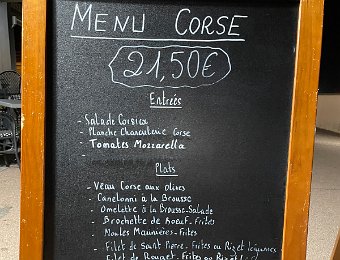 MENU CORSE
21,50€
Entrées
- Salade Corsica
- Planche Charcuterie Corse
- Tomates Mozzarella
-
Plats
- Veau Corse aux olives
- Canelonni à la Brousse
- Omelette à la Brousse-Salade
- Brochette de Bœuf-Frites
- Moules Marinières-Frites
- Filet de Saint Pierre-Frites ou Riz et légumes
- Filet de Rouget-Frites ou Riz et